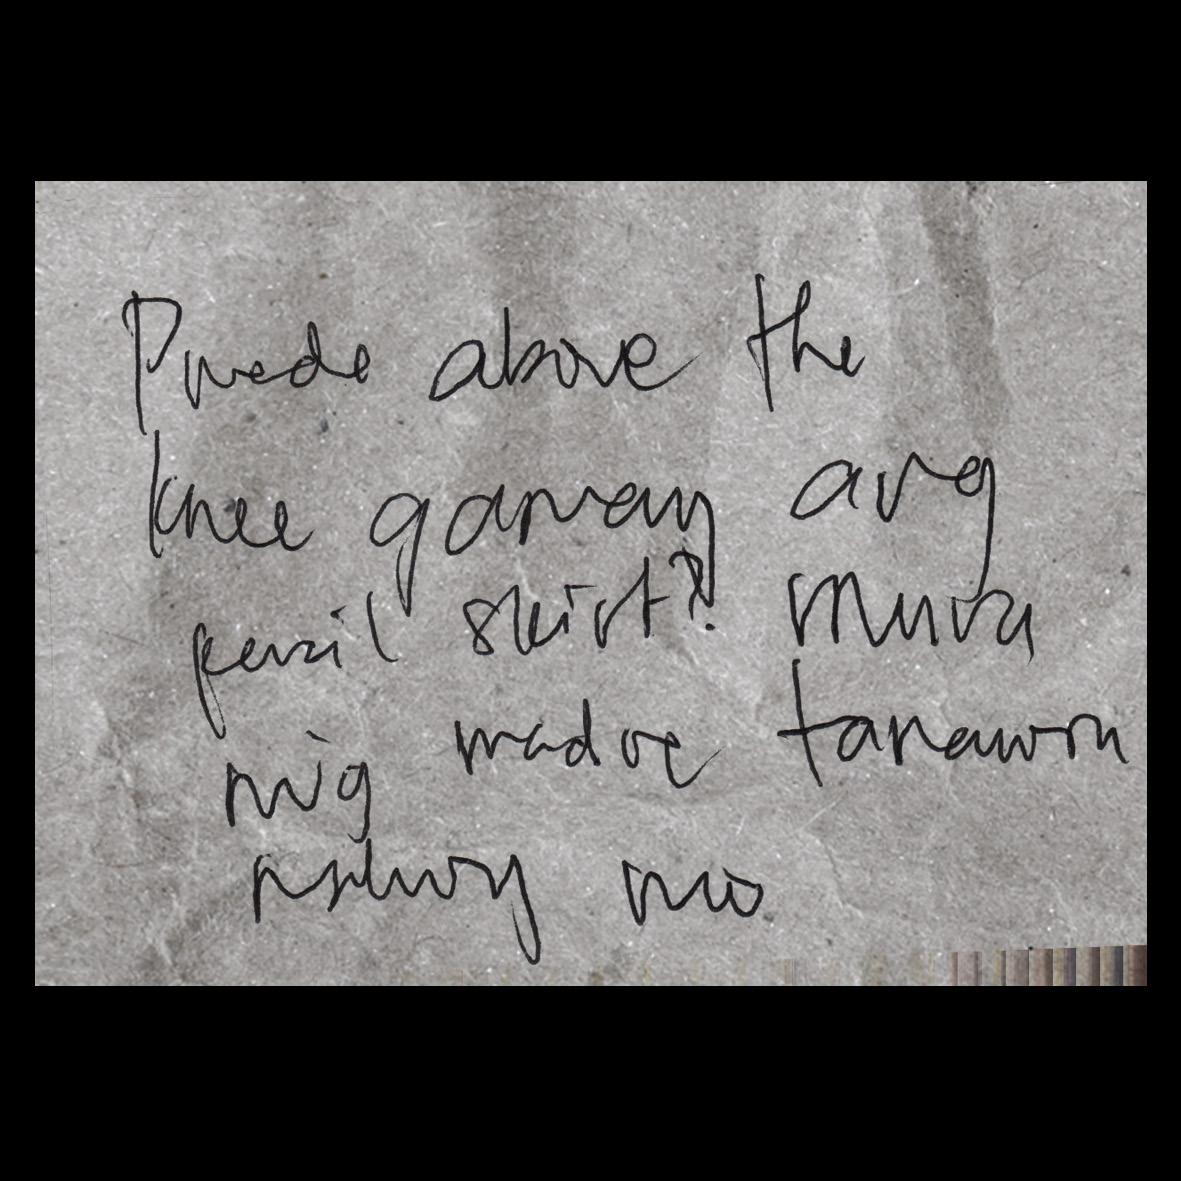 Puede above the
knee gamay ang
pencil skirt? Mura
mig madre tanawon
mo